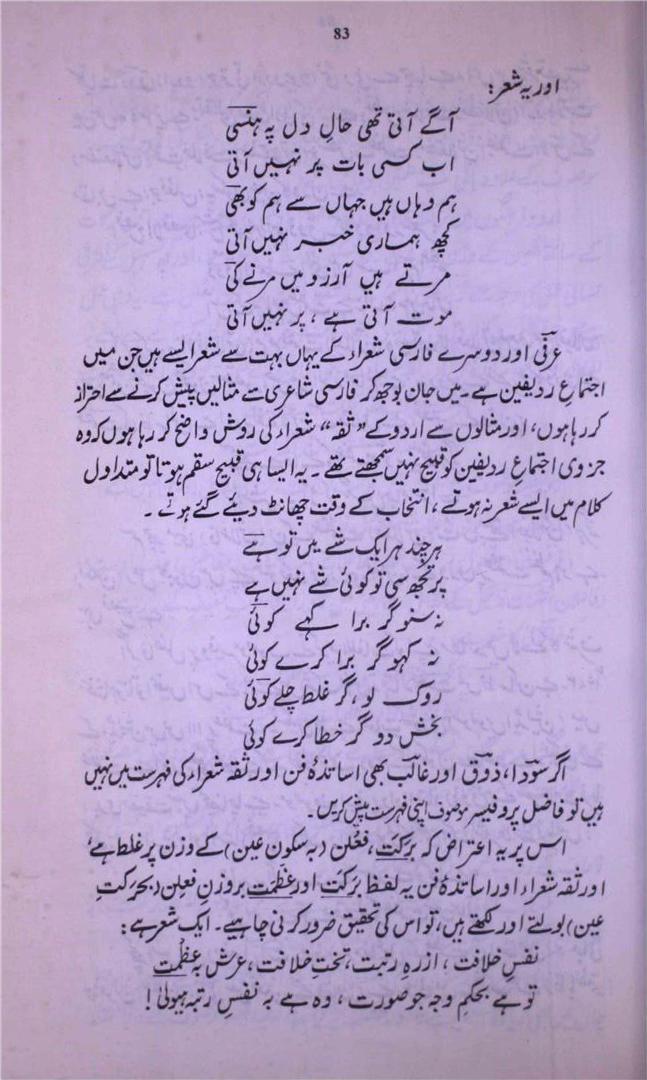 83
اور یہ شعر:
آگے آتی تھی حالِ دل پہ ہنسی
اب کسی بات پر نہیں آتی
ہم وہاں ہیں جہاں سے ہم کو بھی
کچھ ہماری خبر نہیں آتی
مرتے ہیں آرزو میں مرنے کی
موت آتی ہے ، پر نہیں آتی
عرفی اور دوسرے فارسی شعراء کے یہاں بہت سے شعر ایسے ہیں جن میں
اجتماعِ ردیفین ہے ۔ میں جان بوجھ کر فارسی شاعری سے مثالیں پیش کرنے سے احتراز
کر رہا ہوں، اور مثالوں سے اردو کے ”ثقہ“ شعراء کی روش واضح کر رہا ہوں کہ وہ
جزوی اجتماعِ ردیفین کو قبیح نہیں سمجھتے تھے ۔ یہ ایسا ہی قبیح سقم ہوتا تو متداول
کلام میں ایسے شعر نہ ہوتے ، انتخاب کے وقت چھانٹ دیئے گئے ہوتے ۔
ہر چند ہر ایک شے میں تو ہے
پر تجھ سی تو کوئی شے نہیں ہے
نہ سنو گر برا کہے کوئی
نہ کہو گر برا کرے کوئی
روک لو ، گر غلط چلے کوئی
بخش دو گر خطا کرے کوئی
اگر سودا، ذوق اور غالب بھی اساتذۂ فن اور ثقہ شعراء کی فہرست میں نہیں
ہیں تو فاضل پروفیسر موصوف اپنی فہرست پیش کریں۔
اس پر یہ اعتراض کہ برکت ، فعْلن (بہ سکون عین) کے وزن پر غلط ہے،
اور ثقہ شعراء اور اساتذۂ فن یہ لفظ برَکت اور عظَمت بروزنِ فعِلن (بحرَکتِ
عین) بولتے اور لکھتے ہیں، تو اس کی تحقیق ضرور کرنی چاہیے۔ ایک شعر ہے :
نفسِ خلافت ، ازرہِ رتبت، تختِ خلافت، عرش بہ عظمت
تو ہے بحکمِ وجہ جو صورت ، وہ ہے بہ نفسِ رتبہ ہیولیٰ !